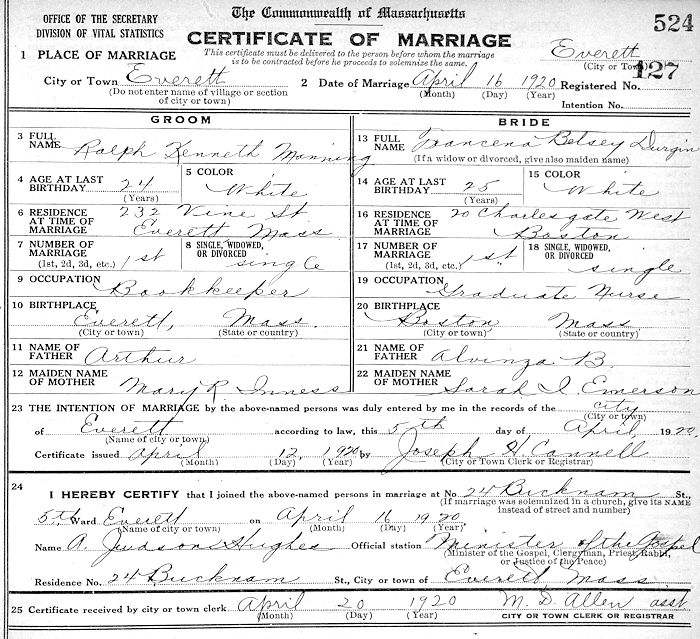 OFFICE OF THE SECRETARY
DIVISION OF VITAL STATISTICS
The Commonwealth of Massachusetts
524
CERTIFICATE OF MARRIAGE
This certificate must be delivered to the person before whom the marriage
is to be contracted before he proceeds to solemnize the same.
1 PLACE OF MARRIAGE
Everett
(City or Town)
City or Town Everett
(Do not enter name of village or section
of city or town)
2 Date of Marriage April 16 1920
(Month) (Day) (Year)
Registered No. 127
Intention No.
GROOM
3 FULL NAME Ralph Kenneth Manning
4 AGE AT LAST BIRTHDAY 24
(Years)
5 COLOR White
6 RESIDENCE AT TIME OF MARRIAGE 232 Vine St
Everett Mass.
7 NUMBER OF MARRIAGE 1st
(1st, 2d, 3d, etc.)
8 SINGLE, WIDOWED, OR DIVORCED single
9 OCCUPATION Bookkeeper
10 BIRTHPLACE Everett, Mass.
(City or town) (State or country)
11 NAME OF FATHER Arthur
12 MAIDEN NAME OF MOTHER Mary R. Inness
BRIDE
13 FULL NAME Francena Betsey Durgin
(If a widow or divorced, give also maiden name)
14 AGE AT LAST BIRTHDAY 25
(Years)
15 COLOR White
16 RESIDENCE AT TIME OF MARRIAGE 20 Charlesgate West
Boston
17 NUMBER OF MARRIAGE 1st
(1st, 2d, 3d, etc.)
18 SINGLE, WIDOWED, OR DIVORCED single
19 OCCUPATION Graduate Nurse
20 BIRTHPLACE Boston Mass
(City or town) (State or country)
21 NAME OF FATHER Alvinza B.
22 MAIDEN NAME OF MOTHER Sarah I. Emerson
23 THE INTENTION OF MARRIAGE by the above-named persons was duly entered by me in the records of the city
(City or town)
of Everett according to law, this 5th day of April, 1920
(Name of city or town)
Certificate issued April 12, 1920 by Joseph H. Cannell
(Month) (Day) (Year) (City or Town Clerk or Registrar)
24
I HEREBY CERTIFY that I joined the above-named persons in marriage at No 24 Bucknam St.,
(If marriage was solemnized in a church, give its NAME
instead of street and number)
5th Ward Everett on April 16 1920
(Name of city or town) (Month) (Day) (Year)
Name A. Judson Hughes Official station Minister of the Gospel
(Minister of the Gospel, Clergyman, Priest, Rabbi,
or Justice of the Peace)
Residence No. 24 Bucknam St., City or town of Everett, Mass.
25 Certificate received by city or town clerk April 20 1920 M. D. Allen asst
(Month) (Day) (Year) CITY OR TOWN CLERK OR REGISTRAR